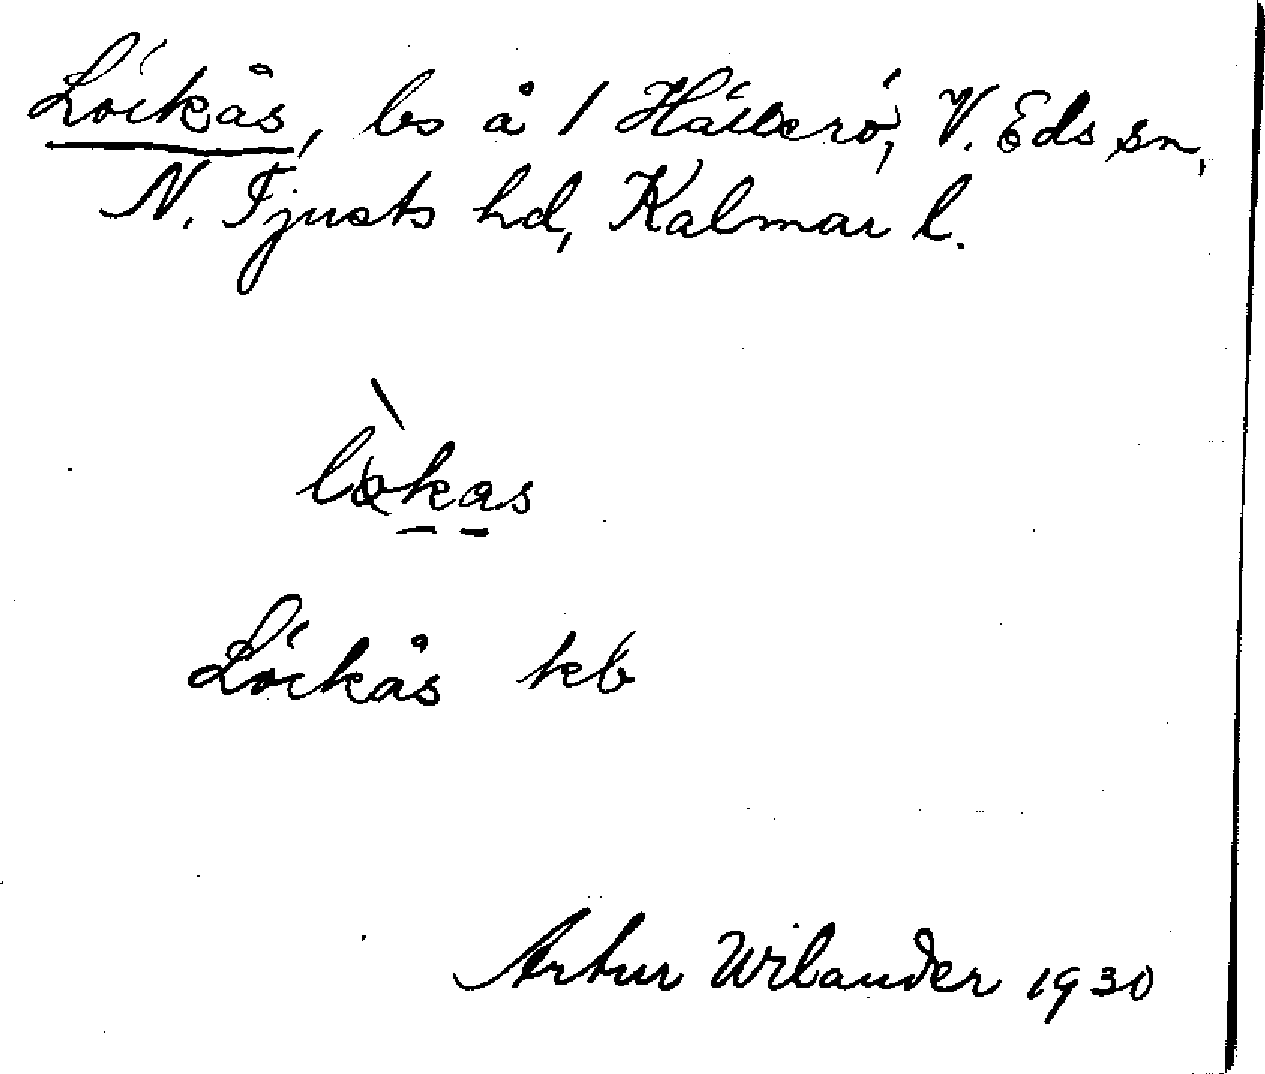 Löckås, bs å 1 Hälterö, V. Eds sn,
N. Tjusts hd, Kalmar l.
Löckås kb
Artur Wilander 1930